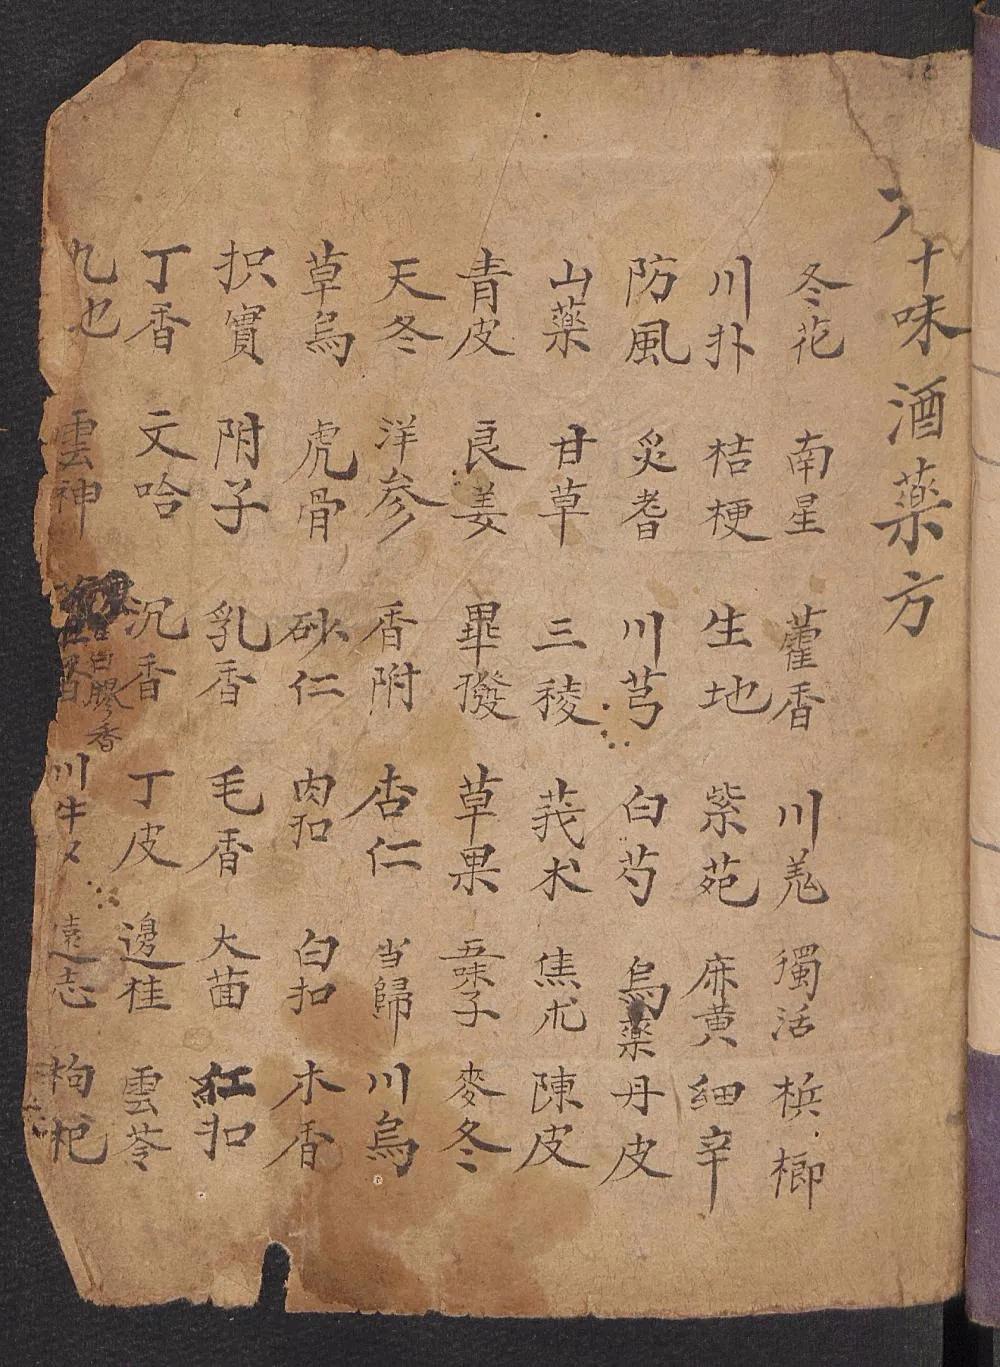 十味酒藥方
冬花 南星 藿香 川羗 獨活 梹榔
川扑 桔梗 生地 紫苑 麻黄 細辛
防風 炙耆 川芎 白芍 烏藥 丹皮
山藥 甘草 三稜 莪朮 焦朮 陳皮
青皮 良姜 畢撥 草果 五味子 麥冬
天冬 洋参 香附 杏仁 当歸 川烏
草烏 虎骨 砂仁 肉扣 白扣 木香
枳實 附子 乳香 毛香 大茴 紅扣
丁香 文哈 沉香 丁皮 邊桂 雲苓
白膠香
九也 雲神 川牛夕 遠志 枸杞